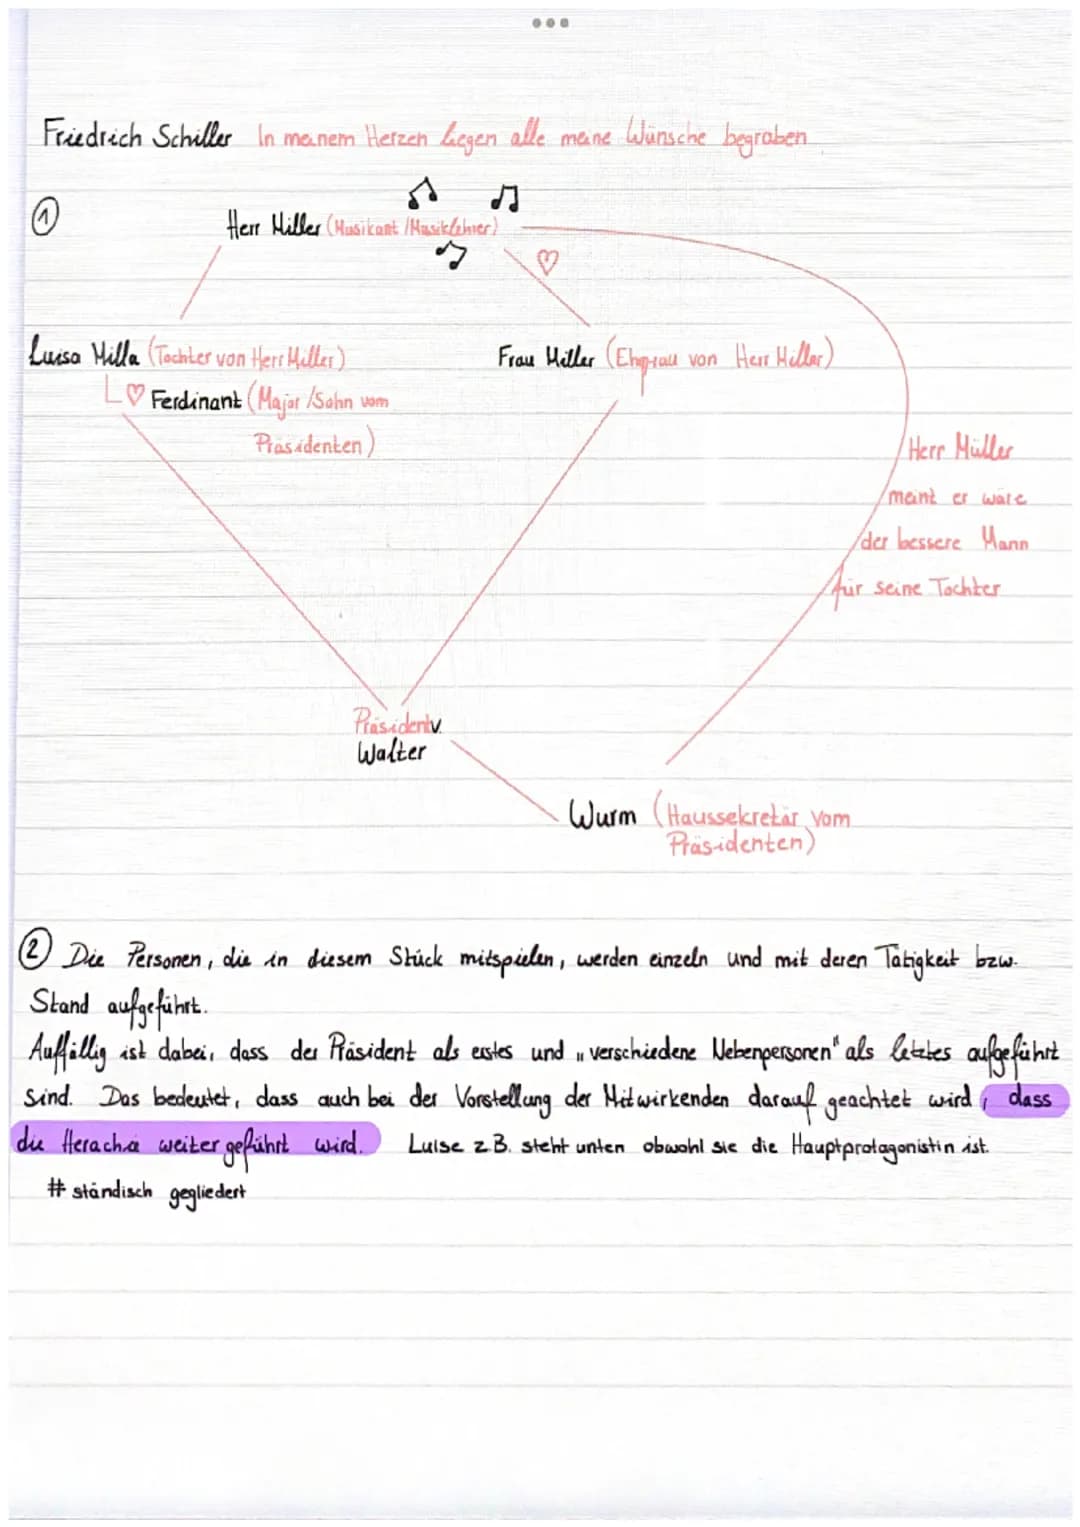 Friedrich Schiller In meinem Herzen liegen alle meine Wünsche begraben
1
Herr Miller (Musikant /Musiklehrer)
Luisa Milla (Tochter von Herr Miller)
Frau Miller (Ehefrau von Herr Miller)
Ferdinant (Major /Sohn vom
Präsidenten)
Herr Müller
meint er wäre
der bessere Mann
für seine Tochter
Präsident v.
Walter
Wurm (Haussekretär vom
Präsidenten)
2 Die Personen, die in diesem Stück mitspielen, werden einzeln und mit deren Tätigkeit bzw.
Stand aufgeführt.
Auffällig ist dabei, dass der Präsident als erstes und „verschiedene Nebenpersonen" als letztes aufgeführt
sind. Das bedeutet, dass auch bei der Vorstellung der Mitwirkenden darauf geachtet wird, dass
die Herachie weiter geführt wird. Luise z.B. steht unten obwohl sie die Hauptprotagonistin ist.
# ständisch gegliedert